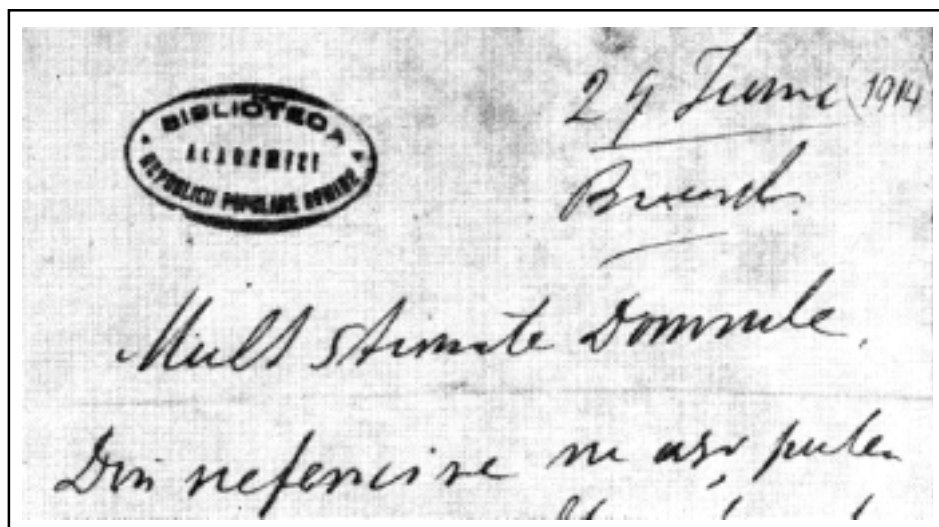 BIBLIOTECA
ACADEMIEI
REPUBLICII POPULARE ROMÂNE
29 Iunie (1914
Mult stimate Domnule,
Din nefericire nu ași putea